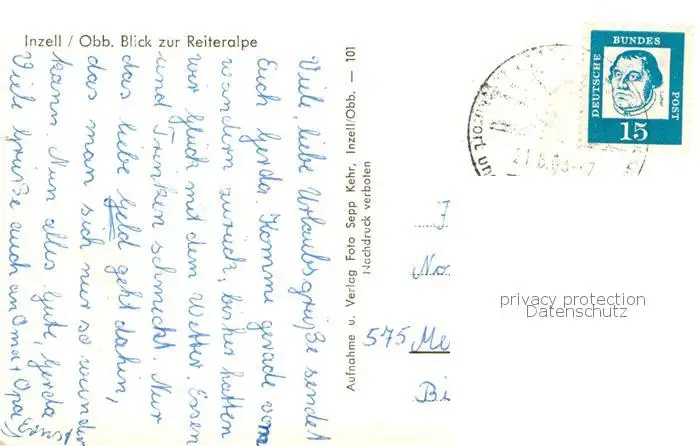 Inzell / Obb. Blick zur Reiteralpe
Viele, liebe Urlaubsgrüße sendet
Euch Gerda. Komme gerade vom
wandern zurück, bisher hatten
wir Glück mit dem Wetter. Essen
und Trinken schmeckt. Nur
das liebe Geld geht dahin,
das man sich nur so wundern
kann. Nun alles Gute, Gerda
Viele Grüße auch an Oma + Opa
Aufnahme u. Verlag Foto Sepp Kehr, Inzell/Obb. — 101
Nachdruck verboten
DEUTSCHE
BUNDES
POST
15
575 Me
Bi
privacy protection
Datenschutz